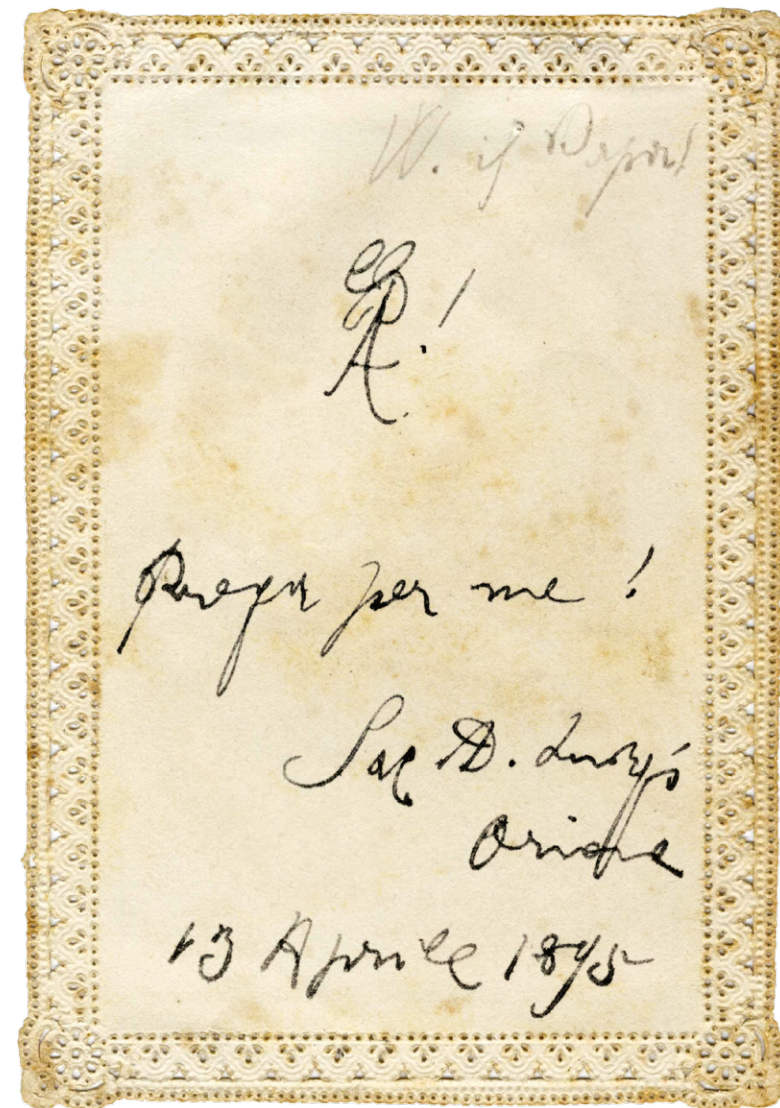 W. il Papa!
Prega per me !
Sac D. Luigi
Orione
13 Aprile 1895